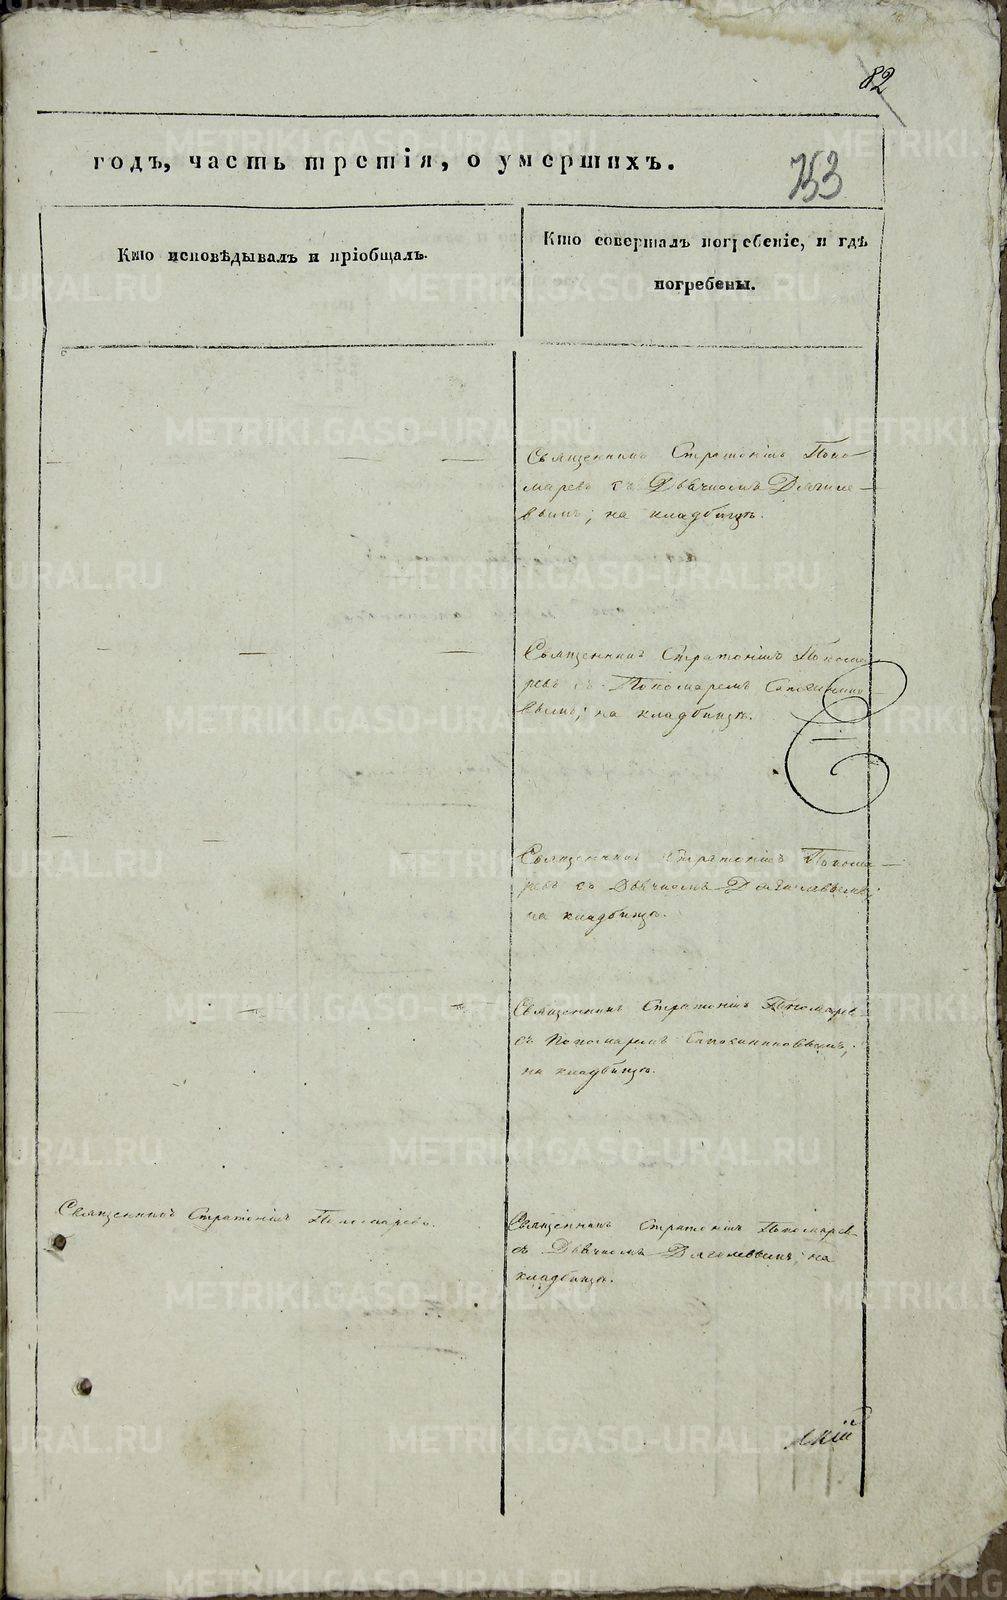 82
годъ, часть третія, о умершихъ.
753
Кто исповѣдывалъ и пріобщалъ.
Кто совершалъ погребеніе, и гдѣ
погребены.
Священникъ Стратоникъ Поно
маревъ съ Дьячкомъ Дягиле
вымъ; на кладбищѣ.
Священникъ Стратоникъ Понома
ревъ съ Пономаремъ
вымъ; на кладбищѣ.
Священникъ Стратоникъ Понома
ревъ съ Дьячкомъ Дягилевымъ;
на кладбищѣ.
Священникъ Стратоникъ Пономарев
съ Пономаремъ
на кладбищѣ.
Священникъ Стратоникъ Пономаревъ.
Священникъ Стратоникъ Пономарев
съ Дьячкомъ Дягилевымъ; на
кладбищѣ.
скій
METRIKI.GASO-URAL.RU